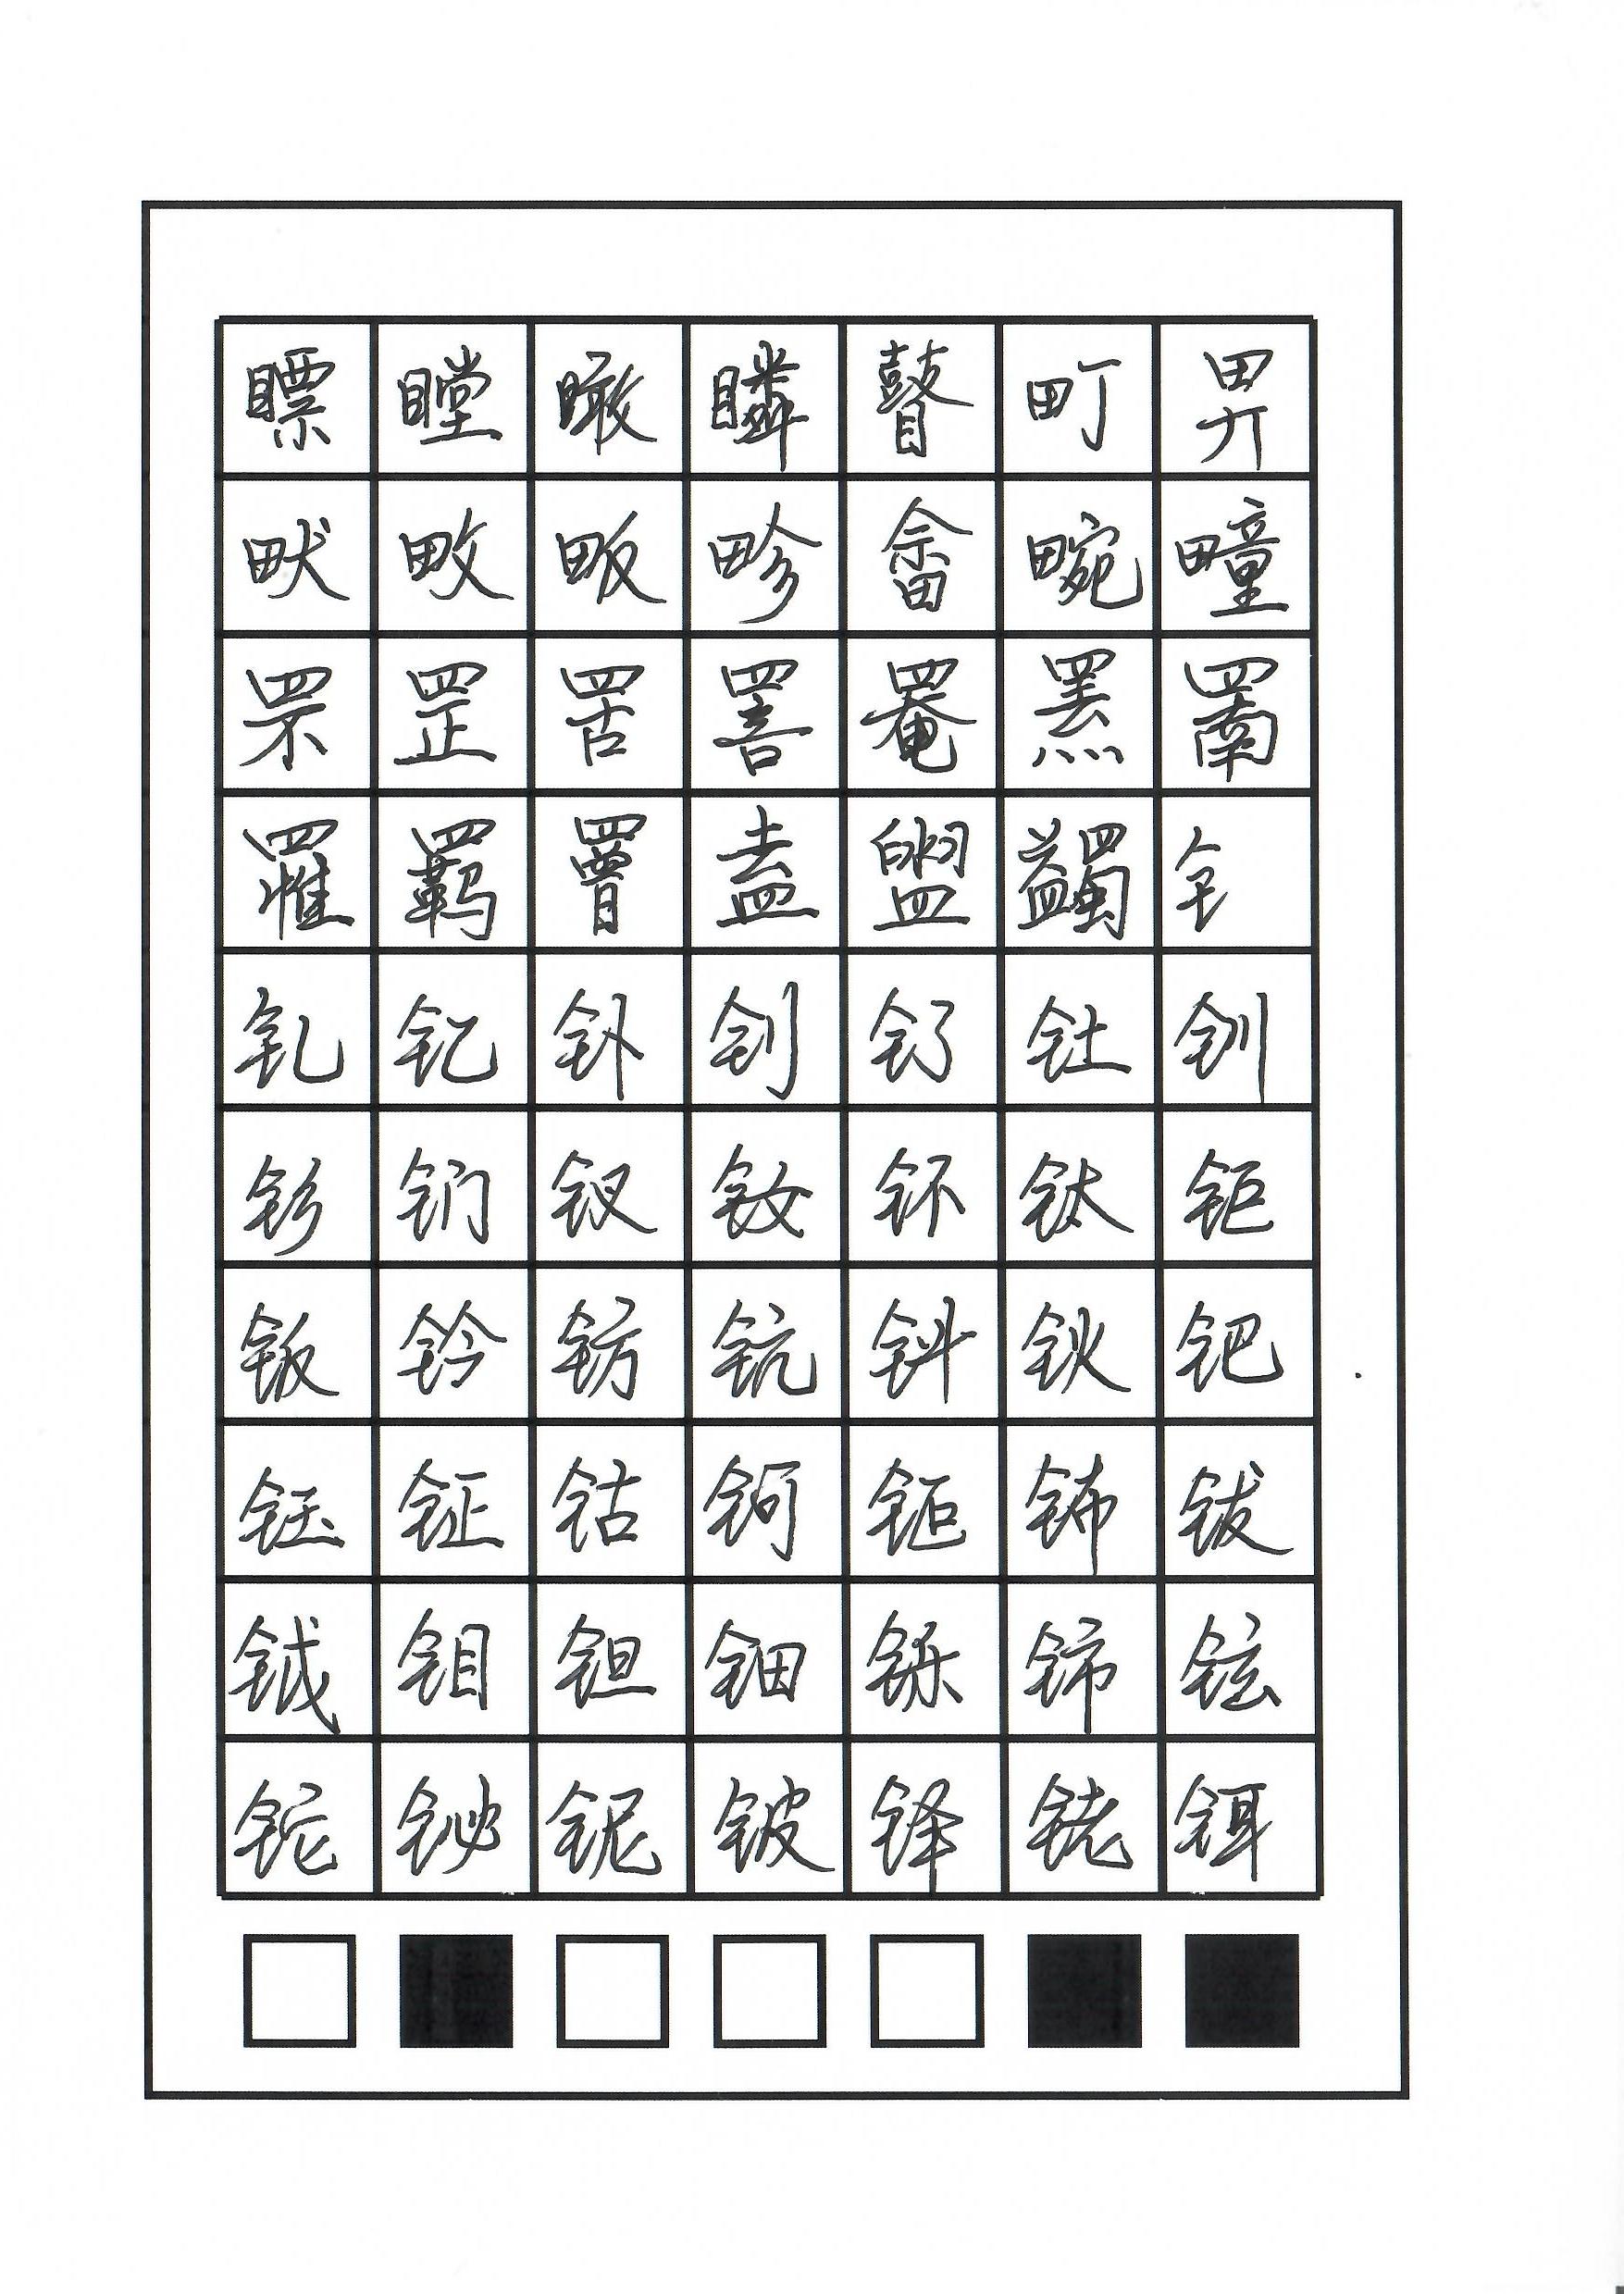 瞟瞠瞰瞵瞽町畀
畎畋畈畛畲畹疃
罘罡罟詈罨罴罱
罹羁罾盍盥蠲钅
钆钇钋钊钌钍钏
钐钔钗钕钚钛钜
钣钤钫钪钭钬钯
钰钲钴钶钷钸钹
钺钼钽钿铄铈铉
铊铋铌铍铎铑铒